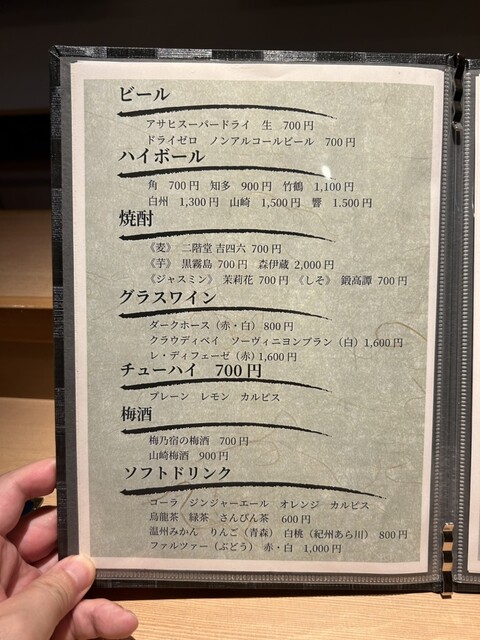 ビール
アサヒスーパードライ 生 700円
ドライゼロ ノンアルコールビール 700円
ハイボール
角 700円 知多 900円 竹鶴 1,100円
白州 1,300円 山崎 1,500円 響 1.500円
焼酎
《麦》 二階堂 吉四六 700円
《芋》 黒霧島 700円 森伊蔵 2,000円
《ジャスミン》 茉莉花 700円 《しそ》 鍛高譚 700円
グラスワイン
ダークホース（赤・白）800円
クラウディベイ ソーヴィニヨンブラン（白）1,600円
レ・ディフェーゼ（赤）1,600円
チューハイ 700円
プレーン レモン カルピス
梅酒
梅乃宿の梅酒 700円
山崎梅酒 900円
ソフトドリンク
コーラ ジンジャーエール オレンジ カルピス
烏龍茶 緑茶 さんぴん茶 600円
温州みかん りんご（青森） 白桃（紀州あら川） 800円
ファルツァー（ぶどう） 赤・白 1,000円